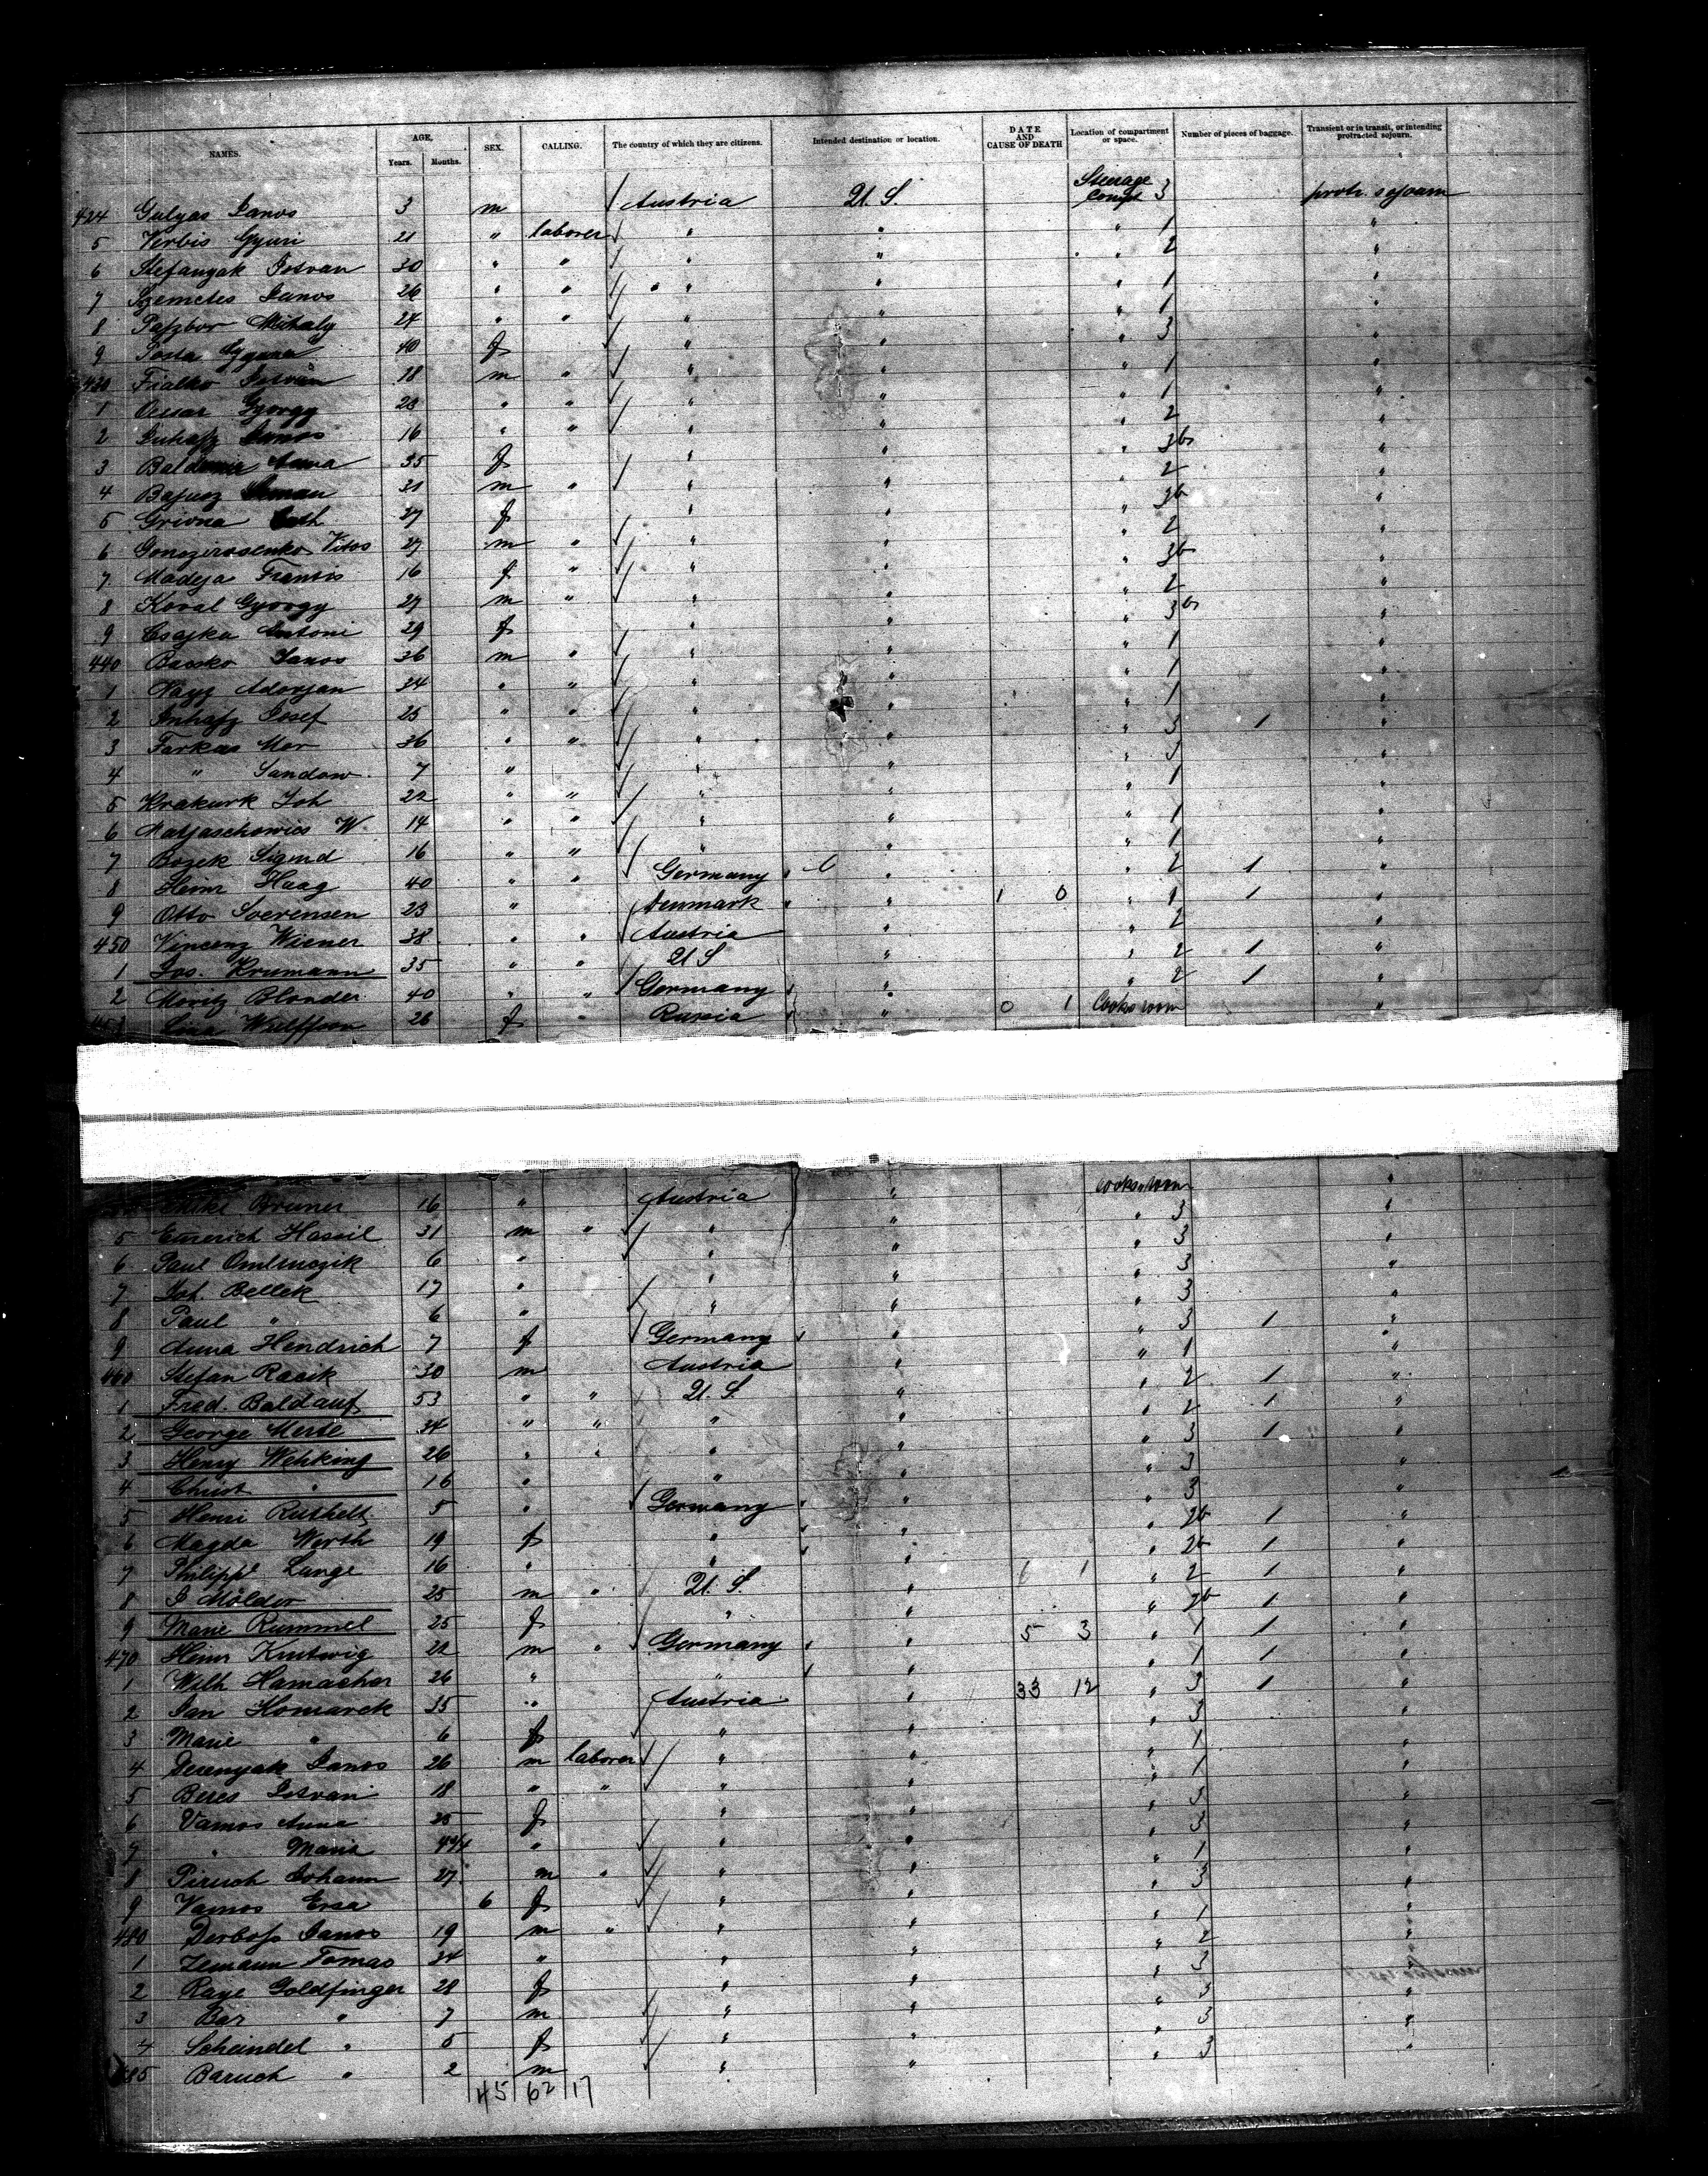 NAMES. AGE. Years. Months. SEX. CALLING. The country of which they are citizens. Intended destination or location. DATE AND CAUSE OF DEATH Location of compartment or space. Number of pieces of baggage. Transient or in transit, or intending protracted sojourn.
424 Gulyas Janos 3 m Austria U. S. Steerage Compt 3 protr. sojourn
5 Verbis Gyuri 21 " laborer " " " 1 "
6 Stefanyak Istvan 30 " " " " " 2 "
7 Szemetes Janos 26 " " " " " 1 "
8 Mihaly 24 " " " " " 1 "
9 Posta 40 f " " " 3 "
430 Fialko Istvan 18 m " " " " 1 "
1 Gyorgy 23 " " " " " 1 "
2 Juhasz Janos 16 " " " " " 2 "
3 Anna 35 f " " " 3b "
4 31 m " " " " 2 "
5 Grivna 27 f " " " 3b "
6 Vitos 27 m " " " " 2 "
7 Madeja Frantis 16 f " " " " 3b "
8 Koval Gyorgy 27 m " " " " 2 "
9 Csajka Antoni 29 f " " " 3b "
440 Bacsko Janos 36 m " " " " 1 "
1 Adorjan 34 " " " " " 1 "
2 Josef 25 " " " " " 1 "
3 Farkas Mor 36 " " " " " 3 1 "
4 " Sandow 7 " " " " 3 "
5 Krakurk Joh 22 " " " " " 1 "
6 Matjaschowics W. 14 " " " " " 1 "
7 Bozek Sigmd 16 " " " " " 1 "
8 Heinr Haag 40 " " Germany " " 2 1 "
9 Otto Soerensen 23 " Denmark " 1 0 " 1 1 "
450 Vincenz Wiener 38 " " Austria " " 2 "
1 Jos. Krumann 35 " " U S " " 2 1 "
2 Moritz Blonder 40 " " Germany " " 2 1 "
453 Lina Wulffson 26 f " Russia " 0 1 Cooks room "
Bruner 16 " Austria " Cooks room "
5 Emerich Hassil 31 m " " " " 3 "
6 Paul 6 " " " " 3 "
7 Joh. Bellek 17 " " " " 3 "
8 Paul " 6 " " " " 3 "
9 Anna Hendrich 7 f Germany " " 3 1 "
460 Stefan Racik 30 m Austria " " 1 "
1 Fred. Baldauf 53 " " U. S. " " 2 1 "
2 George Merte 34 " " " " " 2 1 "
3 Henry Wehking 26 " " " " " 3 1 "
4 Christ " 16 " " " " 3 "
5 Henri Ruthelt 5 " Germany " " 3 "
6 Magda Werth 19 f " " " 2b 1 "
7 Philippi Lange 16 " " " " 2b 1 "
8 J Mölder 25 m " U. S. " 6 1 " 2 1 "
9 Marie Rummel 25 f " " " 2b 1 "
470 Heinr Knutwig 22 m " Germany " 5 3 " 1 1 "
1 Wilh Hamacher 26 " " " " 1 1 "
2 Jan Komarek 35 " Austria " 33 12 " 3 1 "
3 Marie " 6 f " " " 3 "
4 Derenyak Janos 26 m laborer " " " 1 "
5 Beres Istvan 18 " " " " " 1 "
6 Vamos Anna 25 f " " " 3 "
7 " Maria " " " " 3 "
8 Piruch Johann 27 m " " " " 1 "
9 Vamos Ersa 6 f " " " 3 "
480 Janos 19 m " " " " 1 "
1 Zemann Tomas 34 " " " " 2 "
2 Raye Goldfinger 28 f " " " 3 "
3 Bar " 7 m " " " 3 "
4 Scheindel " 5 f " " " 3 "
485 Baruch " 2 m " " " 3 "
45 62 17